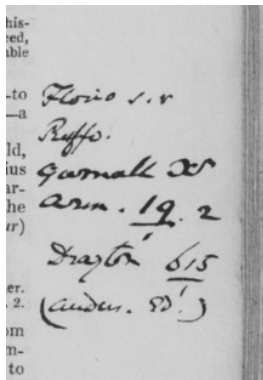 his-
eed,
able
-to
—a
ld,
ius
ar-
he
ur)
er.
. 2.
om
m-
to
Florio s.v
Ruffo.
Gurnall
Arm. 19. 2
Drayton 615
(Anders. Ed.)